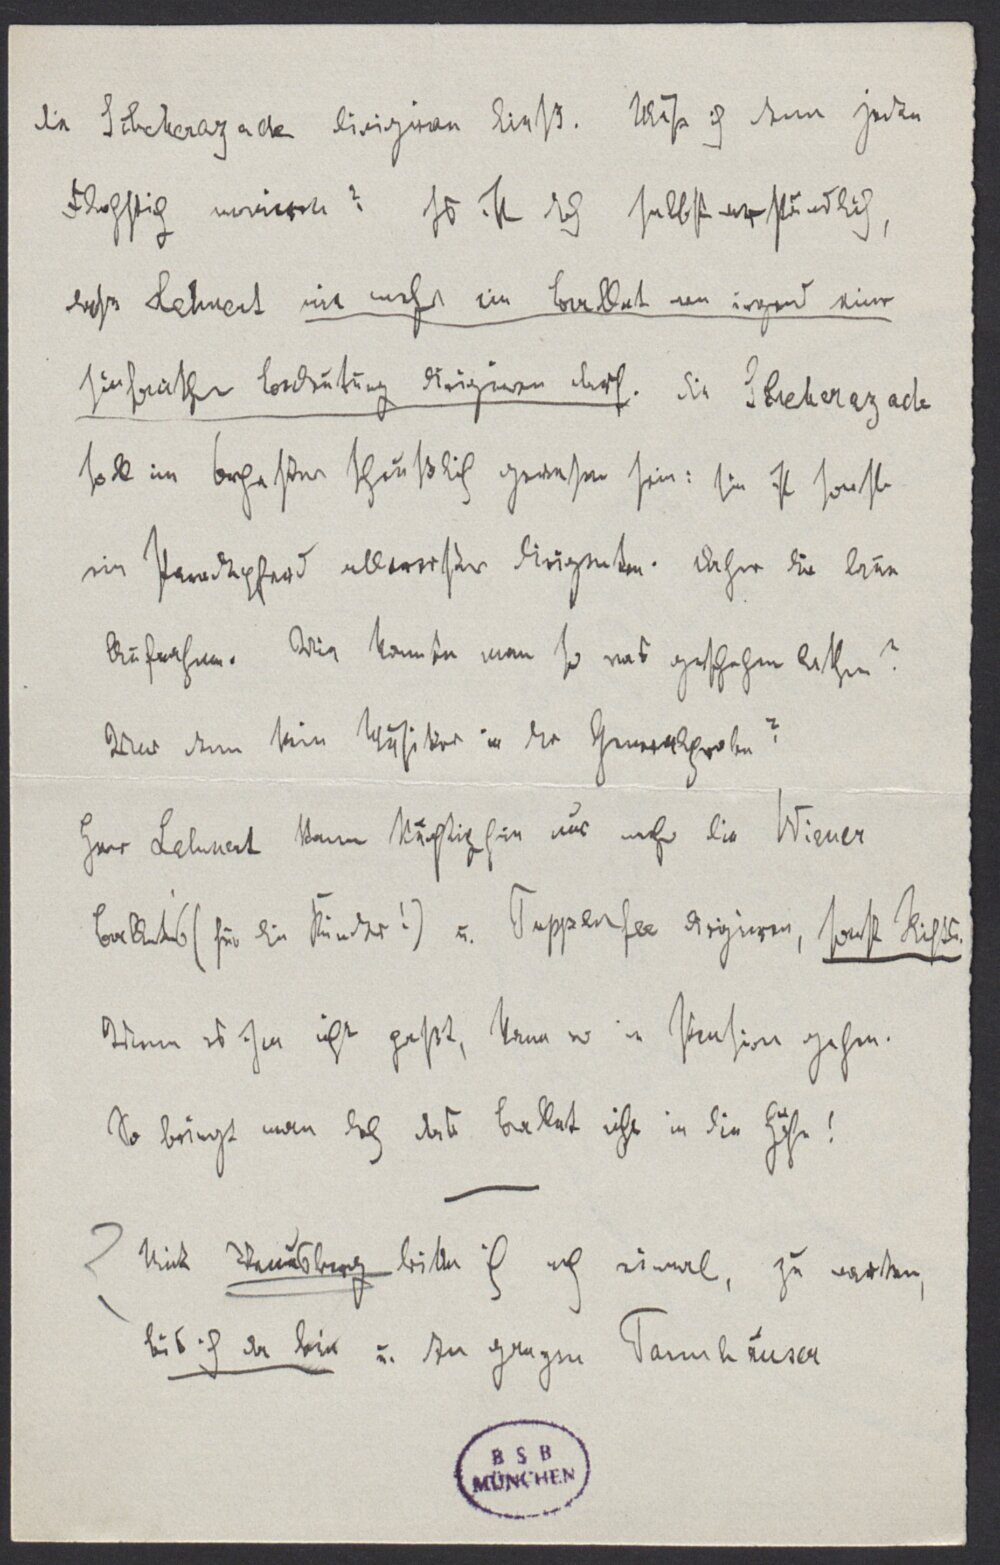 die Scheherazade dirigiren ließ. Muß ich denn jeden
Flohstich voraussehen? Es ist doch selbstverständlich,
daß Lehnert nie mehr ein Ballet von irgend einer
sinfonischen Bedeutung dirigiren darf. Die Scheherazade
soll im Orchester scheußlich gewesen sein: sie ist sonst
ein Paradepferd allererster Dirigenten. Daher die laue
Aufnahme. Wie konnte man so was geschehen lassen?
War denn kein Musiker in der Generalprobe?
Herr Lehnert kann künftighin nur mehr die Wiener
Ballets (für die Kinder!) u. Puppenfee dirigiren, sonst Nichts.
Wenn es ihm nicht paßt, kann er in Pension gehen.
So bringt man doch das Ballet nicht in die Höhe!
Mit Venusberg bitte ich noch einmal, zu warten,
bis ich da bin u. den ganzen Tannhäuser
B S B
MÜNCHEN